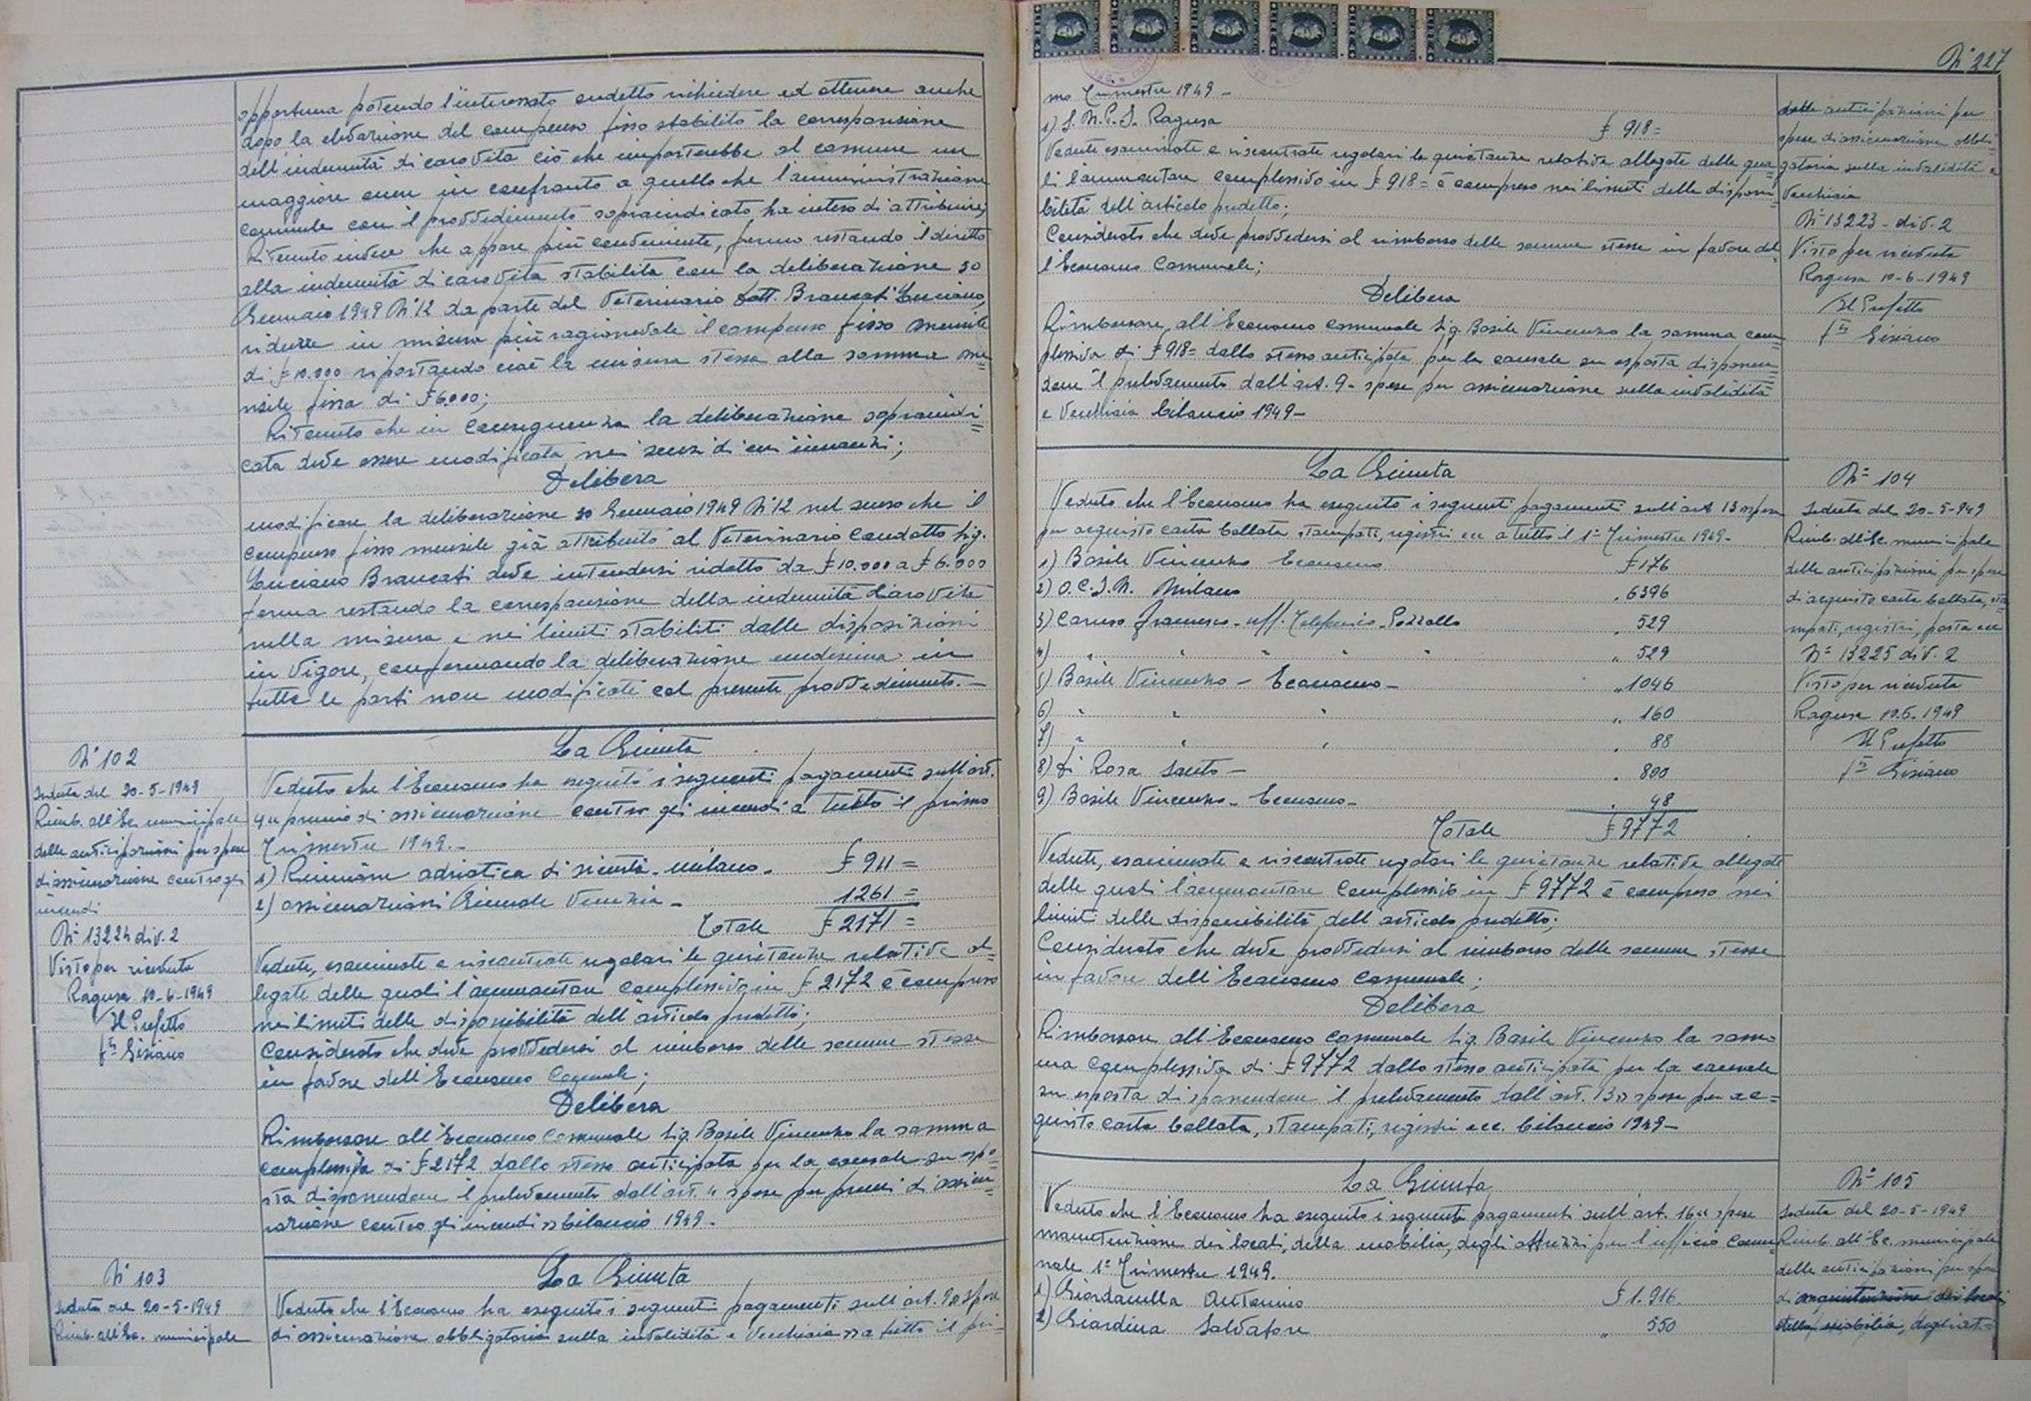 opportuna potendo l'interessato suddetto richiedere ed ottenere anche
dopo la elevazione del compenso fisso stabilito la corresponsione
dell'indennità di caro vita ciò che importerebbe al comune un
maggiore onere in confronto a quello che l'amministrazione
comunale con il provvedimento sopraindicato ha inteso di attribuire;
Ritenuto invece che appare più conveniente, fermo restando il diritto
alla indennità di caro vita stabilita con la deliberazione 30
Gennaio 1949 N° 12 da parte del Veterinario Dott. Brancati Luciano,
ridurre in misura più ragionevole il compenso fisso mensile
di £ 10.000 riportando cioè la misura stessa alla somma me=
nsile fissa di £ 6.000;
Ritenuto che in conseguenza la deliberazione sopraindi=
cata deve essere modificata nei sensi di cui innanzi;
Delibera
modificare la deliberazione 30 Gennaio 1949 N° 12 nel senso che il
compenso fisso mensile già attribuito al Veterinario Condotto Sig.
Luciano Brancati deve intendersi ridotto da £ 10.000 a £ 6.000
ferma restando la corresponsione della indennità di caro vita
nella misura e nei limiti stabiliti dalle disposizioni
in vigore, confermando la deliberazione medesima in
tutte le parti non modificate col presente provvedimento.-
N° 102
Seduta del 20-5-1949
Rimb. all'Ec. municipale
delle anticipazioni per spese
di assicurazione contro gl'
incendi
N° 13224 div. 2
Visto per ricevuta
Ragusa 10-6-1949
Il Prefetto
f° Giziano
La Giunta
Veduto che l'Economo ha eseguito i seguenti pagamenti sull'art.
4 " premio di assicurazione contro gli incendi a tutto il primo
Trimestre 1949.-
1) Riunione adriatica di sicurtà - Milano - £ 911 =
2) assicurazioni Generale Venezia - 1261 =
Totale £ 2171 =
Vedute, esaminate e riscontrate regolari le quietanze relative al=
legate delle quali l'ammontare complessivo in £ 2172 è compreso
nei limiti delle disponibilità dell'articolo predetto;
Considerato che deve provvedersi al rimborso delle somme stesse
in favore dell'Economo Comunale;
Delibera
Rimborsare all'Economo Comunale Sig. Basile Vincenzo la somma
complessiva di £ 2172 dallo stesso anticipata per la causale su espo=
sta disponendone il prelevamento dall'art. 4 spese per premi di assicu=
razione contro gli incendi " bilancio 1949.-
N° 103
Seduta del 20-5-1949
Rimb. all'Ec. municipale
La Giunta
Veduto che l'Economo ha eseguito i seguenti pagamenti sull'art. 9 " spese
di assicurazione obbligatoria sulla invalidità e Vecchiaia " a tutto il pri=
N° 227
mo Trimestre 1949 -
1) I.N.P.S. Ragusa £ 918 =
Vedute esaminate e riscontrate regolari le quietanze relative allegate delle qua=
li l'ammontare complessivo in £ 918 = è compreso nei limiti delle disponi=
bilità dell'articolo predetto;
Considerato che deve provvedersi al rimborso delle somme stesse in favore del=
l'Economo Comunale;
Delibera
Rimborsare, all'Economo Comunale Sig. Basile Vincenzo la somma com=
plessiva di £ 918 = dallo stesso anticipata per la causale su esposta disponen=
done il prelevamento dall'art. 9 - spese per assicurazione sulla invalidità
e Vecchiaia bilancio 1949 -
delle anticipazioni per
spese di assicurazione obbli=
gatoria sulla invalidità e
Vecchiaia
N° 13223 - div. 2
Visto per ricevuta
Ragusa 10-6-1949
Il Prefetto
f° Giziano
La Giunta
Veduto che l'Economo ha eseguito i seguenti pagamenti sull'art. 13 " spese
per acquisto carta bollata, stampati, registri ecc a tutto il 1° Trimestre 1949 -
1) Basile Vincenzo Economo £ 176
2) O.C.I.N. Milano " 6396
3) Caruso Francesco - uff. Telefonico - Pozzallo " 529
4) " " " " " " 529
5) Basile Vincenzo - Economo - " 1046
6) " " " " 160
7) " " " " 88
8) Di Rosa Santo - " 800
9) Basile Vincenzo - Economo - " 48
Totale £ 9772
Vedute, esaminate e riscontrate regolari le quietanze relative allegate
delle quali l'ammontare complessivo in £ 9772 è compreso nei
limiti delle disponibilità dell'articolo predetto;
Considerato che deve provvedersi al rimborso delle somme stesse
in favore dell'Economo Comunale;
Delibera
Rimborsare all'Economo Comunale Sig. Basile Vincenzo la som=
ma complessiva di £ 9772 dallo stesso anticipata per la causale
su esposta disponendone il prelevamento dall'art. 13 " spese per ac=
quisto carta bollata, stampati, registri ecc. bilancio 1949 -
N° 104
Seduta del 20-5-949
Rimb. all'Ec. municipale
delle anticipazioni per spese
di acquisto carta bollata, sta=
mpati, registri, posta ecc
N° 13225 div. 2
Visto per ricevuta
Ragusa 10.6.1949
Il Prefetto
f° Giziano
La Giunta
Veduto che l'Economo ha eseguito i seguenti pagamenti sull'art. 16 " spese
manutenzione dei locali, della mobilia, degli attrezzi per l'ufficio comu=
nale 1° Trimestre 1949.
1) Giordanella Antonino £ 1.916
2) Giardina Salvatore " 550
N° 105
Seduta del 20-5-1949
Rimb. all'Ec. municipale
delle anticipazioni per spese
di manutenzione dei locali
della mobilia, degli at=